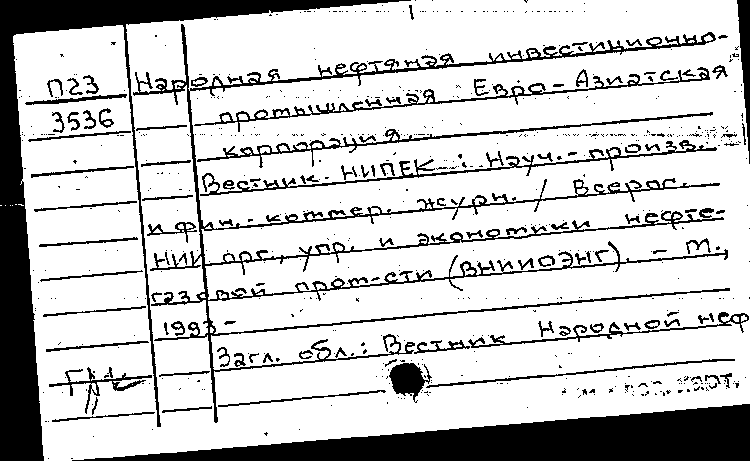 П23 Народная нефтяная инвестиционно-
3536 промышленная Евро-Азиатская
корпорация.
Вестник НИПЕК : Науч.-произв.
и фин.-коммер. журн. / Всерос.
НИИ орг., упр. и экономики нефте-
газовой пром-сти (ВНИИОЭНГ). - М.,
1993-
Загл. обл.: Вестник Народной неф